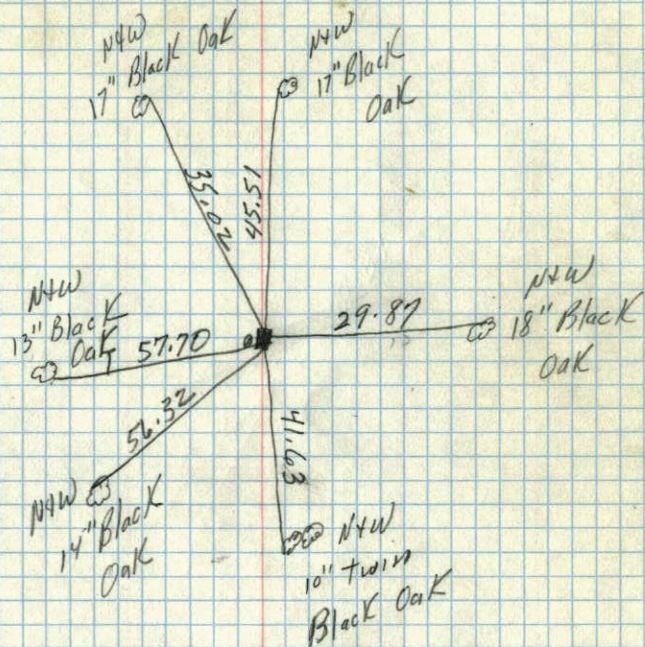 N+W
17" Black Oak
N+W
17" Black
Oak
35.02
45.51
N+W
13" Black
Oak
57.70
29.87
N+W
18" Black
Oak
56.32
41.63
N+W
14" Black
Oak
N+W
10" twin
Black Oak